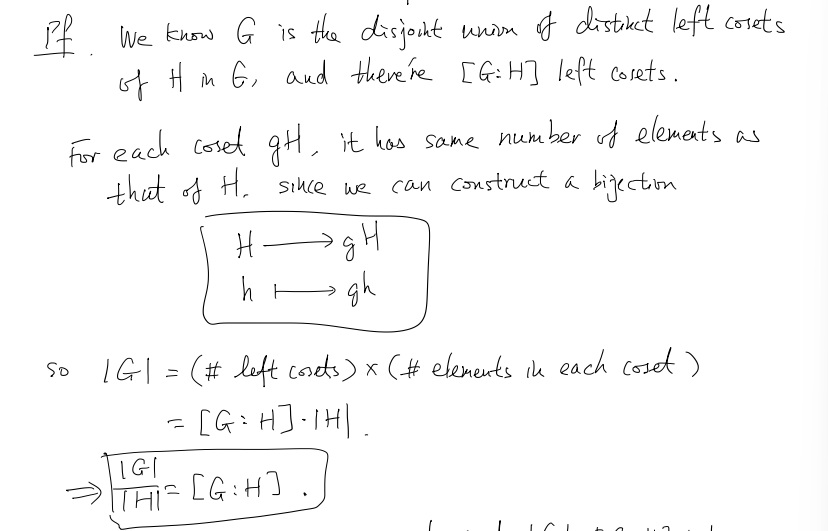 Pf. We know G is the disjoint union of distinct left cosets
of H in G, and there're [G:H] left cosets.
For each coset gH, it has same number of elements as
that of H, since we can construct a bijection
H ⟶ gH
h ⟼ gh
so |G| = (# left cosets) × (# elements in each coset)
= [G:H]·|H|.
⇒ |G|/|H| = [G:H].